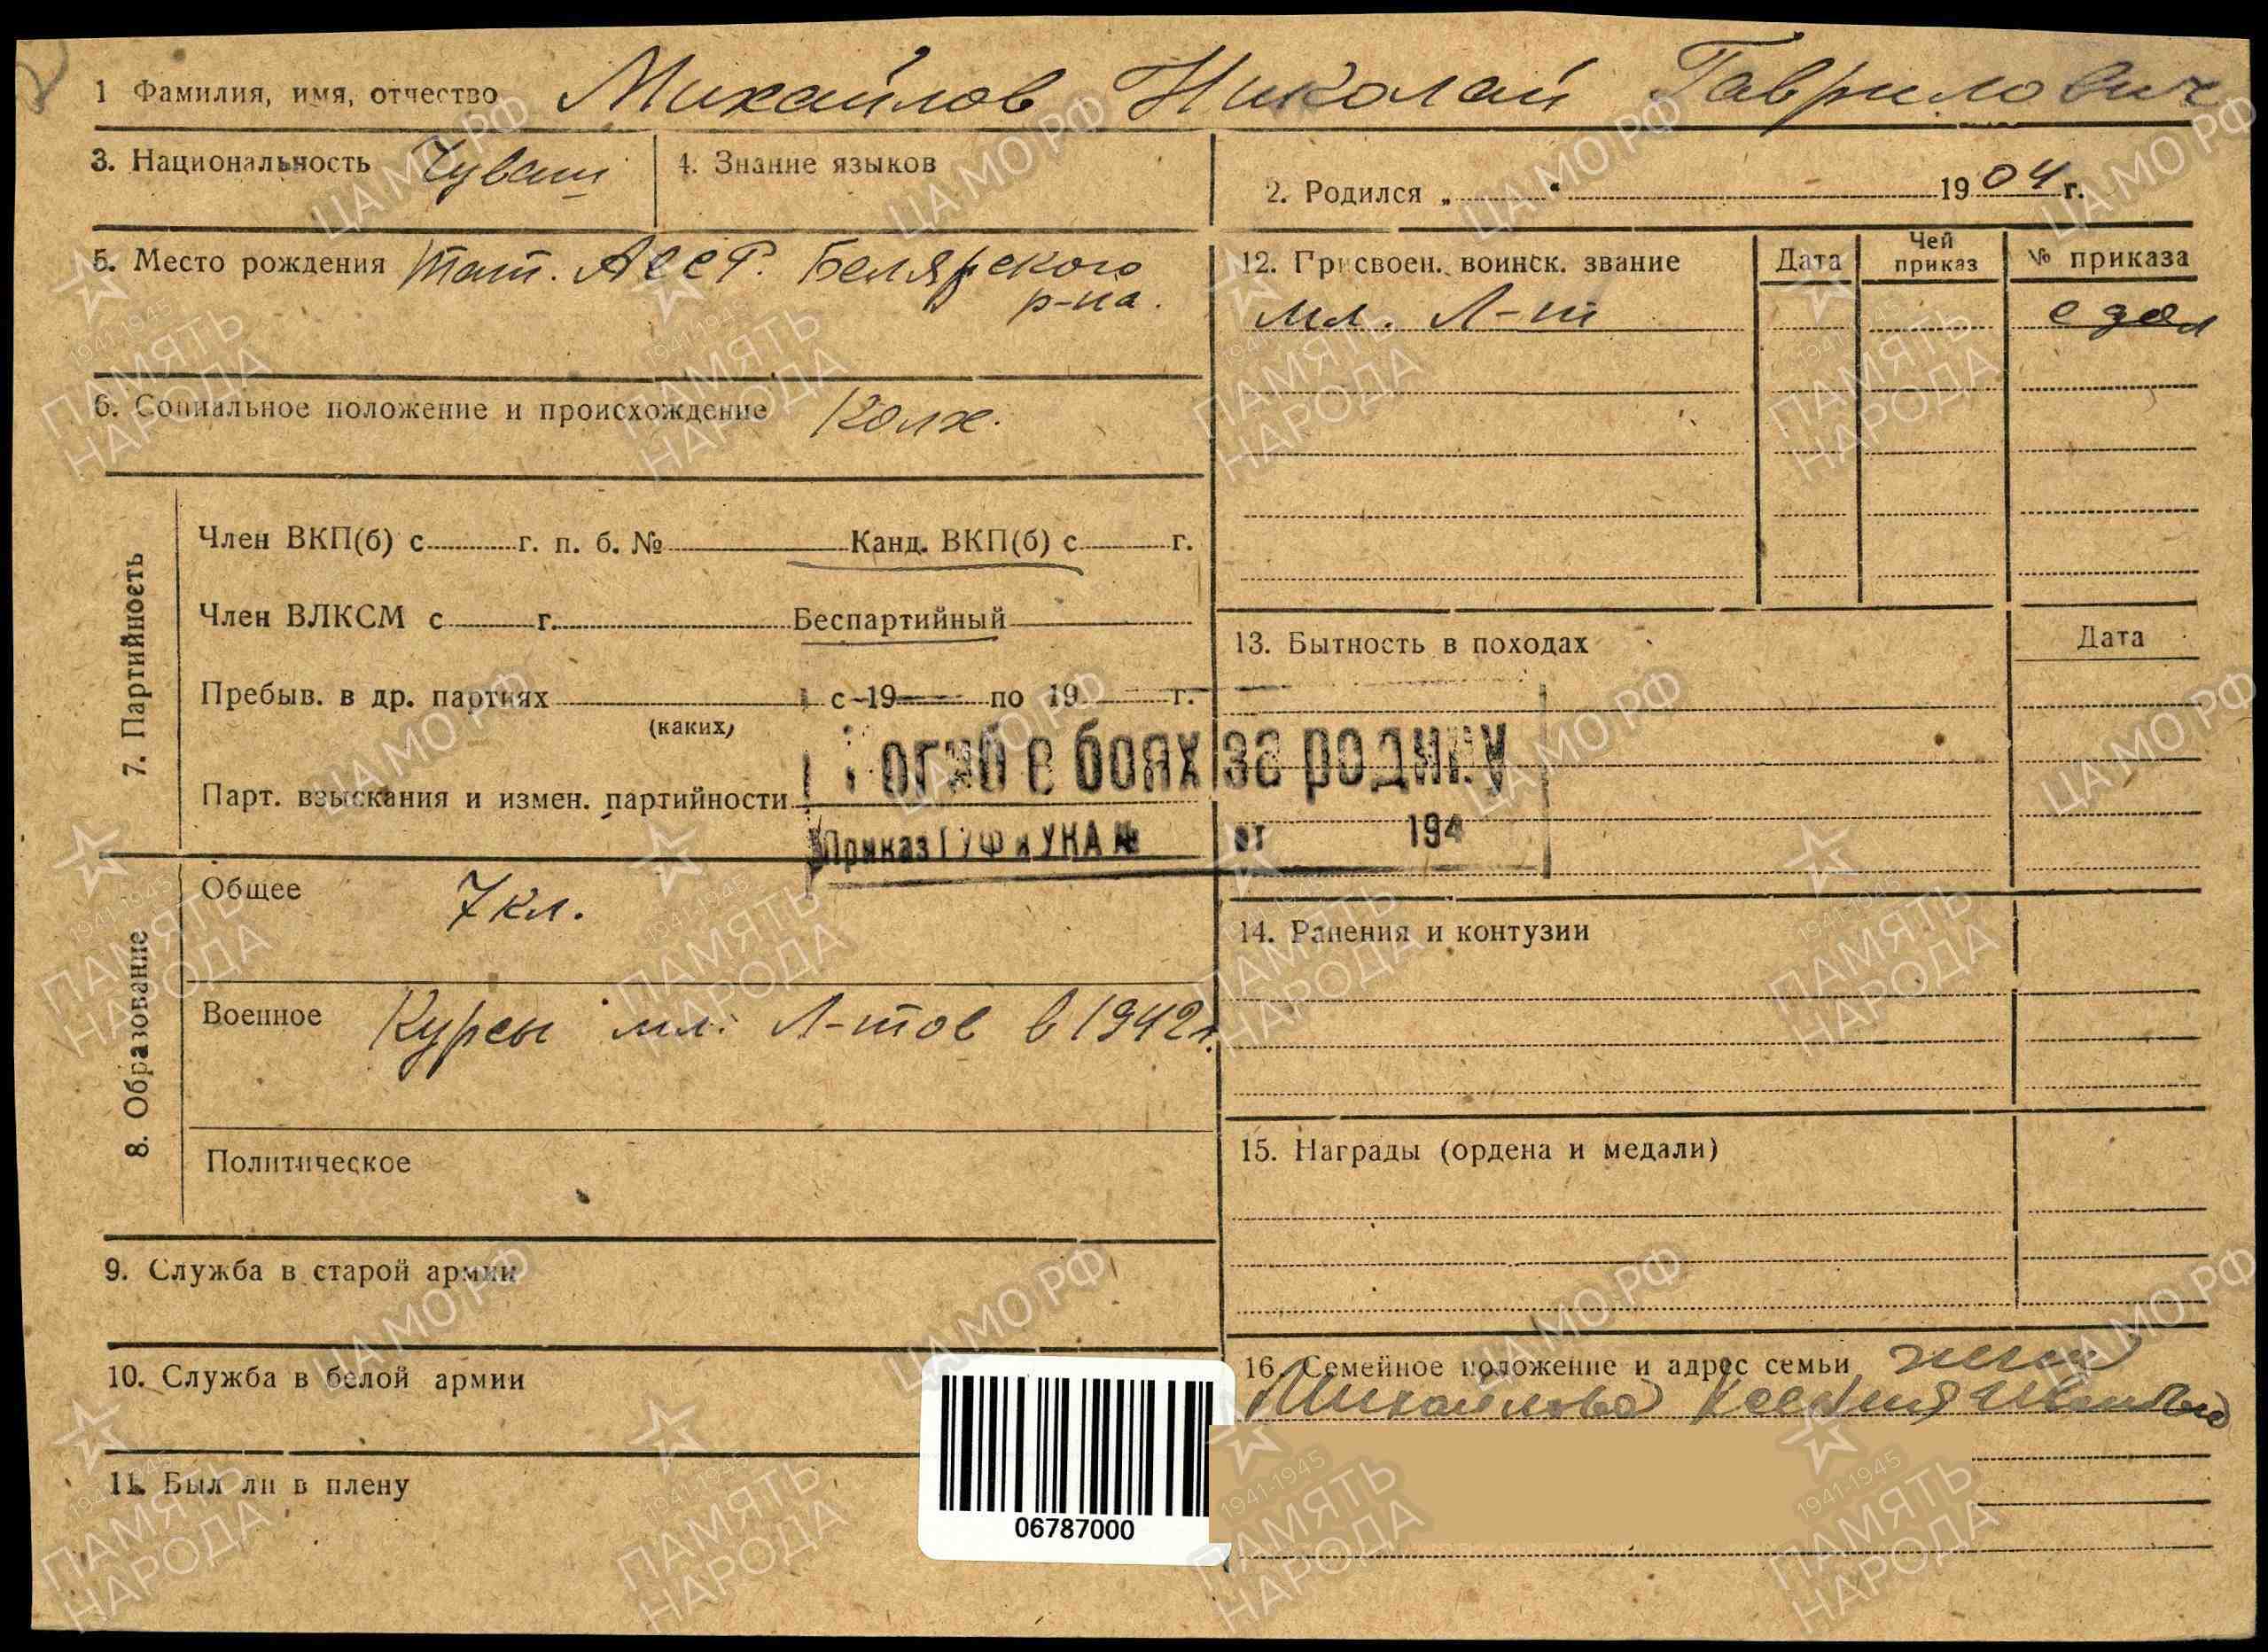 1 Фамилия, имя, отчество Михайлов Николай Гаврилович
3. Национальность Чуваш
4. Знание языков
2. Родился „ “ 1904 г.
5. Место рождения Тат. АССР. Белярского
р-на.
12. Присвоен. воинск. звание Дата Чей приказ № приказа
мл. Л-т
6. Социальное положение и происхождение Колх.
7. Партийность
Член ВКП(б) с г. п. б. № Канд. ВКП(б) с г.
Член ВЛКСМ с г. Беспартийный
Пребыв. в др. партиях с 19 по 19 г.
(каких)
Парт. взыскания и измен. партийности
13. Бытность в походах Дата
Погиб в боях за родину
Приказ ГУФ и УКА № от 194
8. Образование
Общее 7 кл.
Военное Курсы мл. Л-тов в 1942 г.
Политическое
14. Ранения и контузии
15. Награды (ордена и медали)
9. Служба в старой армии
10. Служба в белой армии
11. Был ли в плену
16. Семейное положение и адрес семьи жена
Михайлова Ксения Ивановна
06787000
ЦА МО РФ
1941-1945
ПАМЯТЬ
НАРОДА